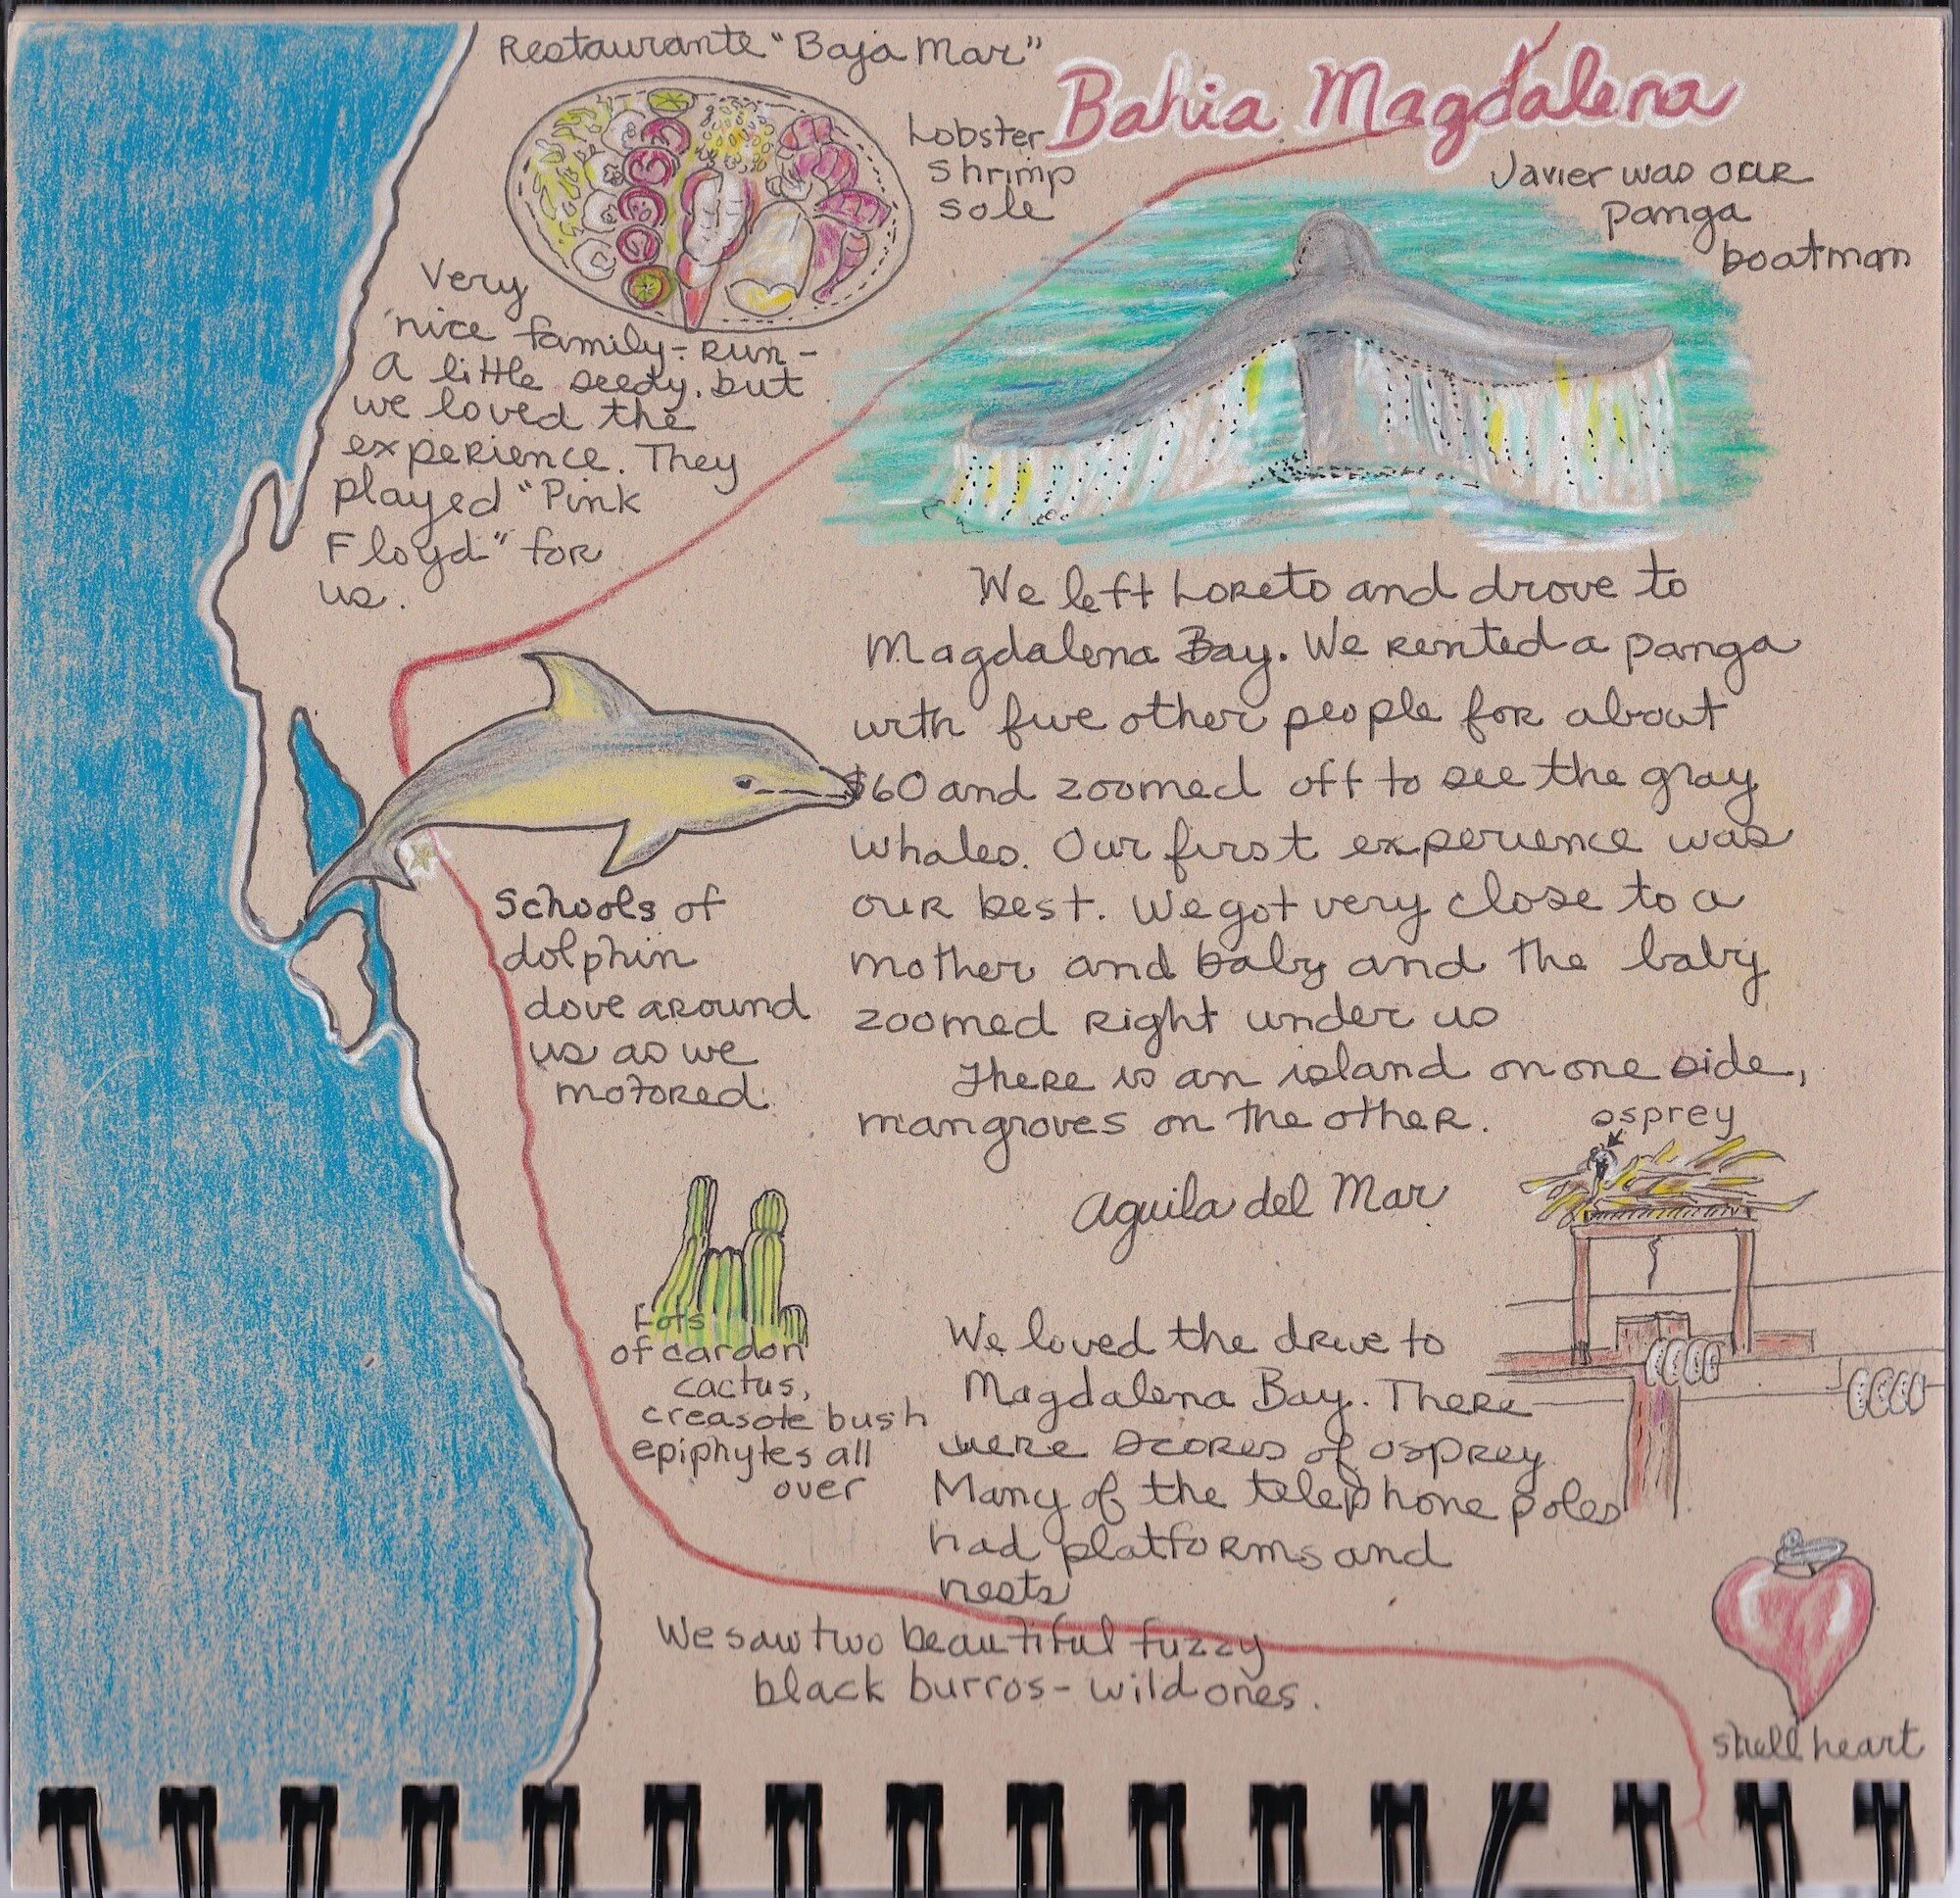 Restaurante "Baja Mar"
Bahia Magdalena
Lobster
shrimp
sole
Javier was our
panga
boatman
Very
nice family-run-
A little seedy, but
we loved the
experience. They
played "Pink
Floyd" for
us.
We left Loreto and drove to
Magdalena Bay. We rented a panga
with five other people for about
$60 and zoomed off to see the gray
whales. Our first experience was
our best. We got very close to a
mother and baby and the baby
zoomed right under us
There is an island on one side,
mangroves on the other.
Schools of
dolphin
dove around
us as we
motored.
osprey
Aguila del Mar
Lots
of cardon
cactus,
creasote bush
epiphytes all
over
We loved the drive to
Magdalena Bay. There
were scores of osprey
Many of the telephone poles
had platforms and
nests
We saw two beautiful fuzzy
black burros - wild ones.
shell heart